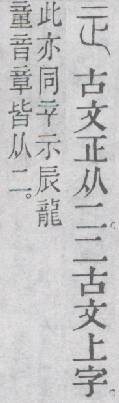 古文正从二。二古文上字。
此亦同䇂示辰龍
童音章皆从二。